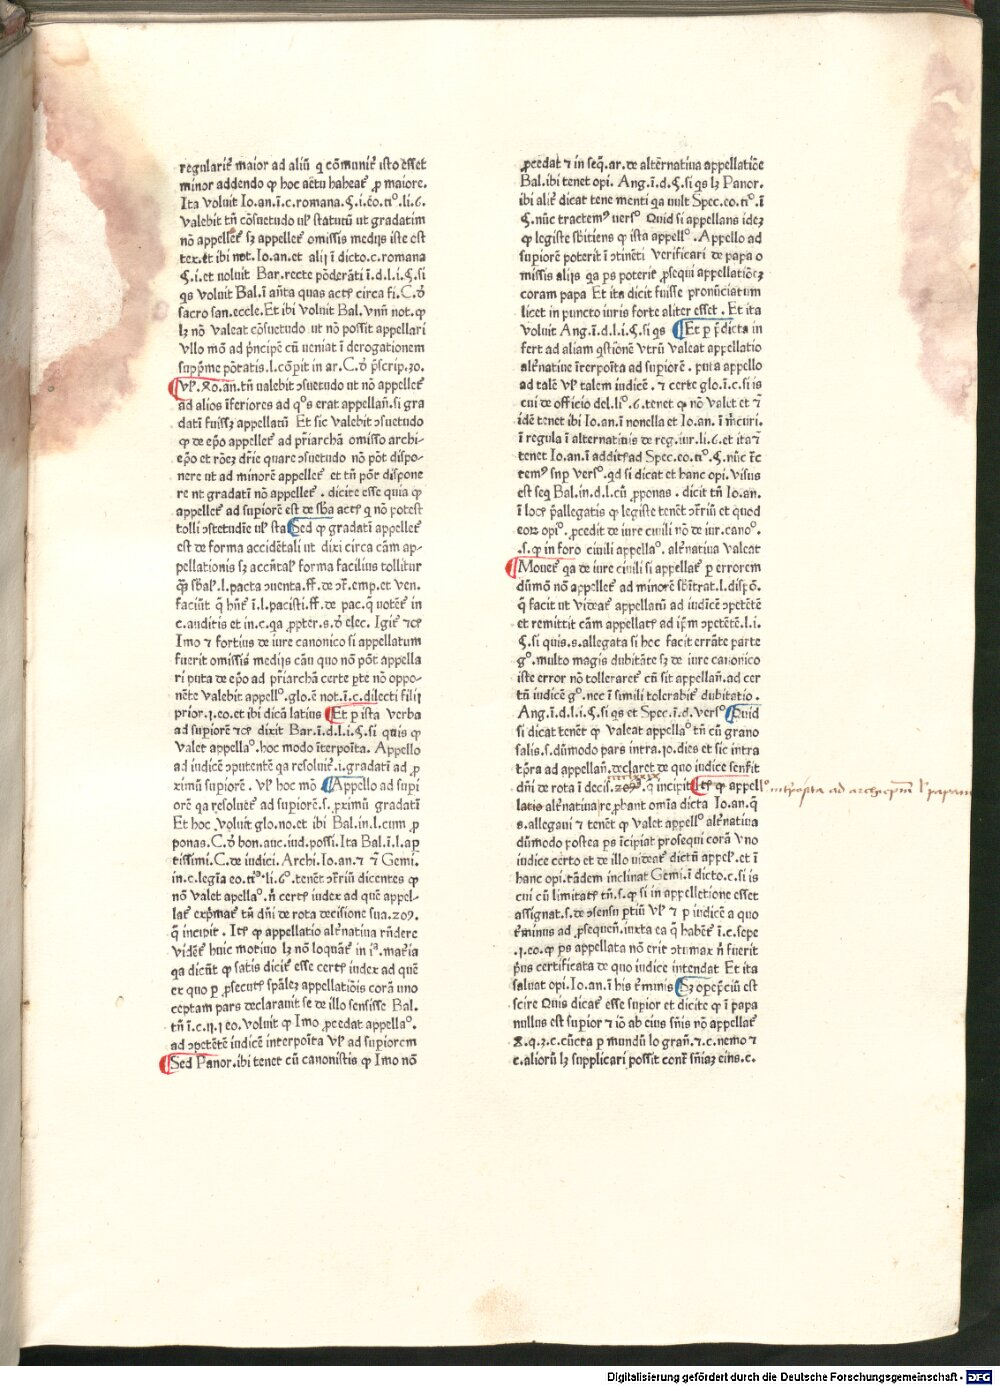 regularit̃ maior ad aliũ q cõmunit̃ isto eſſet
minor addendo ꝙ hoc actu habeat̃ ꝓ maiore.
Ita voluit Io.an.ĩ.c.romana.§.i.eo.tiº.li.6.
valebit tñ cõſuetudo vlꝰ ſtatutũ ut gradatim
nõ appellet̃ ſꝫ appellet̃ omiſſis medijs iſte eſt
tex.et ibi not. Io.an.et alij ĩ dicto.c.romana
§.i.et uoluit Bar.recte põderãti ĩ.d.l.i.§.ſi
q̃s voluit Bal.ĩ añta quas actꝰ circa fi.C.ð
ſacro ſan.eccle.Et ibi voluit Bal. vnũ not.ꝙ
lꝫ nõ valeat cõſuetudo ut nõ poſſit appellari
vllo mõ ad pĩncipẽ cũ ueniat ĩ derogationem
ſupp̃me põtatis.l.cõpit in ar.C.ð p̃ſcrip.30.
vlꝰ.40.an.tñ ualebit ↄſuetudo ut nõ appellet̃
ad alios ĩferiores ad qºs erat appellañ.ſi gra
datĩ fuiſſꝫ appellatũ Et ſic valebit ↄſuetudo
ꝙ de ep̃o appellet̃ ad pr̃iarchã omiſſo archi-
ep̃o et rõeꝫ dr̃ie quare ↄſuetudo nõ põt diſpo-
nere ut ad minorẽ appellet̃ et tñ põt diſpone
re ut gradatĩ nõ appellet̃ . dicite eſſe quia ꝙ
appellet̃ ad ſupiorẽ eſt de ſb̃a actꝰ q nõ poteſt
tolli ↄſtetudĩe ulꝰ ſta Sed ꝙ gradatĩ appellet̃
eſt de forma accidẽtali ut dixi circa cãm ap-
pellationis ſꝫ accñtal̃ forma facilius tollitur
q̃ꝫ ſb̃al̃.l.pacta ↄuenta.ff.de ↄt̃.emp.et ven.
faciũt q̃ hñt̃ ĩ.l.paciſti.ff.de pac.q̃ notẽt̃ in
c.auditis et in.c.qa ꝓpter.s.ð elec. Igit̃ ⁊cꝰ
Imo ⁊ fortius de iure canonico ſi appellatum
fuerit omiſſis medijs cãu quo nõ põt appella
ri puta de ep̃o ad pr̃iarchã certe p̃te nõ oppo-
nẽte valebit appellº.glo.ẽ not.ĩ.c.dilecti filij
prior.j.eo.et ibi dicã latius Et p iſta verba
ad ſupiorẽ ⁊cꝰ dixit Bar.ĩ.d.l.i.§.ſi quis ꝙ
valet appellaº.hoc modo ĩterpoĩta. Appello
ad iudicẽ ↄputentẽ qa reſoluit̃.i.gradatĩ ad ꝓ
ximũ ſupiorẽ . vlꝰ hoc mõ Appello ad ſupi
orẽ qa reſoluẽt̃ ad ſupiorẽ.s. ꝓximũ gradatĩ
Et hoc voluit glo.no.et ibi Bal.in.l.cum ꝓ
ponas.C.ð bon.auc.iud.poſſi. Ita Bal.ĩ.l.ap
tiſſimi.C.de iudici. Archi.Io.an.⁊ ⁊̃ Gemi.
in.c.legĩa eo.tiº.li.6º.tenẽt ↄt̃riũ dicentes ꝙ
nõ valet apellaº.ñ certꝰ iudex ad quẽ appel-
lat̃ exp̃mat̃ tñ dñi de rota deciſione ſua.209.
q̃ incipit . Itꝰ ꝙ appellatio alt̃natiua rñdere
vidẽt̃ huic motiuo lꝫ nõ loquãt̃ in iª.mat̃ia
qa dicũt ꝙ ſatis dicit̃ eſſe certꝰ iudex ad quẽ
ex quo p ꝓſecutꝰ ſpãleꝫ appellatiõis corã uno
ceptam pars declarauit ſe de illo ſenſiſſe Bal.
tñ ĩ.c.ij.j eo.voluit ꝙ Imo ꝓcedat appellaº.
ad ↄpetẽtẽ iudicẽ interpoĩta vlꝰ ad ſupiorem
Sed Panor.ibi tenet cũ canoniſtis ꝙ Imo nõ
ꝓcedat ⁊ in ſeq̃.ar.de altẽrnatiua appellatiõe
Bal.ibi tenet opi. Ang.ĩ.d.§.ſi q̃s lꝫ Panor.
ibi alit̃ dicat tene menti qa uult Spec.eo.tiº.ĩ
§.nũc tractemꝰ uerſº Quid ſi appellans ideꝫ
ꝙ legiſte ſb̃itiens ꝙ iſta appellº . Appello ad
ſupiorẽ poterit ĩ ↄtinẽti verificari de papa o
miſſis alijs qa ps poterit̃ ꝓſequi appellatiõeꝫ
coram papa Et ita dicit fuiſſe pronũciatum
licet in puncto iuris forte aliter eſſet . Et ita
voluit Ang.ĩ.d.l.i.§.ſi q̃s Et p p̃dicta in
fert ad aliam q̃ſtionẽ vtrũ valeat appellatio
alt̃natiue ĩterpoĩta ad ſupiorẽ . puta appello
ad talẽ vlꝰ talem iudicẽ . ⁊ certe glo.ĩ.c.ſi is
cui de officio del.liº.6.tenet ꝙ nõ valet et ⁊̃
idẽ tenet ibi Io.an.ĩ nouella et Io.an. ĩ m̃curi.
ĩ regula ĩ alternatiuis de reg.iur.li.6.et ita ⁊̃
tenet Io.an.ĩ additꝰ ad Spec.eo.tiº.§.nũc t̃c
temꝰ ſup verſº.q̃d ſi dicat et hanc opi. viſus
eſt ſeq̃ Bal.in.d.l.cũ ꝓponas . dicit tñ Io.an.
ĩ locꝰ p̃allegatis ꝙ legiſte tenẽt ↄt̃riũ et quod
eoꝝ opiº. ꝓcedit de iure ciuili nõ de iur.canoº.
.s.ꝙ in foro ciuili appellaº. alt̃natiua valeat
Mouet̃ qa de iure ciuili ſi appellat̃ p errorem
dũmõ nõ appellet̃ ad minorẽ ſb̃itrat.l.diſpõ.
q̃ facit ut videat̃ appellatũ ad iudicẽ ↄpetẽtẽ
et remittit cãm appellatꝰ ad ip̃m ↄpetẽtẽ.l.i.
§.ſi quis.s.allegata ſi hoc facit errãte parte
gº.multo magis dubitãte ſꝫ de iure canonico
iſte error nõ tolleraret̃ cũ ſit appellañ.ad cer
tũ iudicẽ gº.nec ĩ ſimili tolerabit̃ dubitatio .
Ang.ĩ.d.l.i.§.ſi q̃s et Spec.ĩ.d.verſº Quid
ſi dicat tenẽt ꝙ valeat appellaº tñ cũ grano
ſalis.s.dũmodo pars intra.30.dies et ſic intra
tp̃ra ad appellañ.declaret de quo iudice ſenſit
dñi de rota ĩ deciſ.209.q incipit Itꝰ ꝙ appellº interpoſita ad archiepum l' papam
latio alt̃natiua reꝓbant om̃ia dicta Io.an.q̃
s.allegaui ⁊ tenẽt ꝙ valet appellº alt̃natiua
dũmodo poſtea ps ĩcipiat proſequi corã vno
iudice certo et de illo uideat̃ dictũ appelꝰ.et ĩ
hanc opi.tãdem inclinat Gemi.ĩ dicto.c.ſi is
cui cũ limitatꝰ tñ.s.ꝙ ſi in appelletione eſſet
aſſignat.s.de ↄſenſu ptiũ vlꝰ ⁊ p iudicẽ a quo
t̃minus ad ꝓſequeñ.iuxta ea q̃ habẽt̃ ĩ.c.ſepe
.j.eo.ꝙ ps appellata nõ erit ↄtumax ñ fuerit
p̃us certificata de quo iudice intendat Et ita
ſaluat opi.Io.an.ĩ his t̃minis Sꝫ oꝑep̃ciũ eſt
ſcire Quis dicat̃ eſſe ſupior et dicite ꝙ ĩ papa
nullus eſt ſupior ⁊ iõ ab eius ſñis nõ appellat̃
8.q.3.c.cũcta p mundũ lo grañ.⁊.c.nemo ⁊
c.aliorũ lꝫ ſupplicari poſſit cont̃ ſñiaꝫ eius.c.
Digitalisierung gefördert durch die Deutsche Forschungsgemeinschaft - DFG